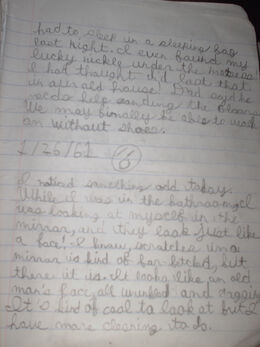 had to sleep in a sleeping bag
last night. I even found my
lucky nickle under the
I had thought I'd lost that
in our old house! Dad says he
help sanding the floors
We may finally be able to walk
on without shoes.
1/26/61 (6)
I noticed something odd today.
While I was in the bathroom I
was looking at myself in the
mirror, and they look just like
a face! I know, scratches in a
mirror is kind of far-fetched, but
there it is. It looks like an old
man's face, all wrinkled and
It's kind of cool to look at but I
have more cleaning to do.